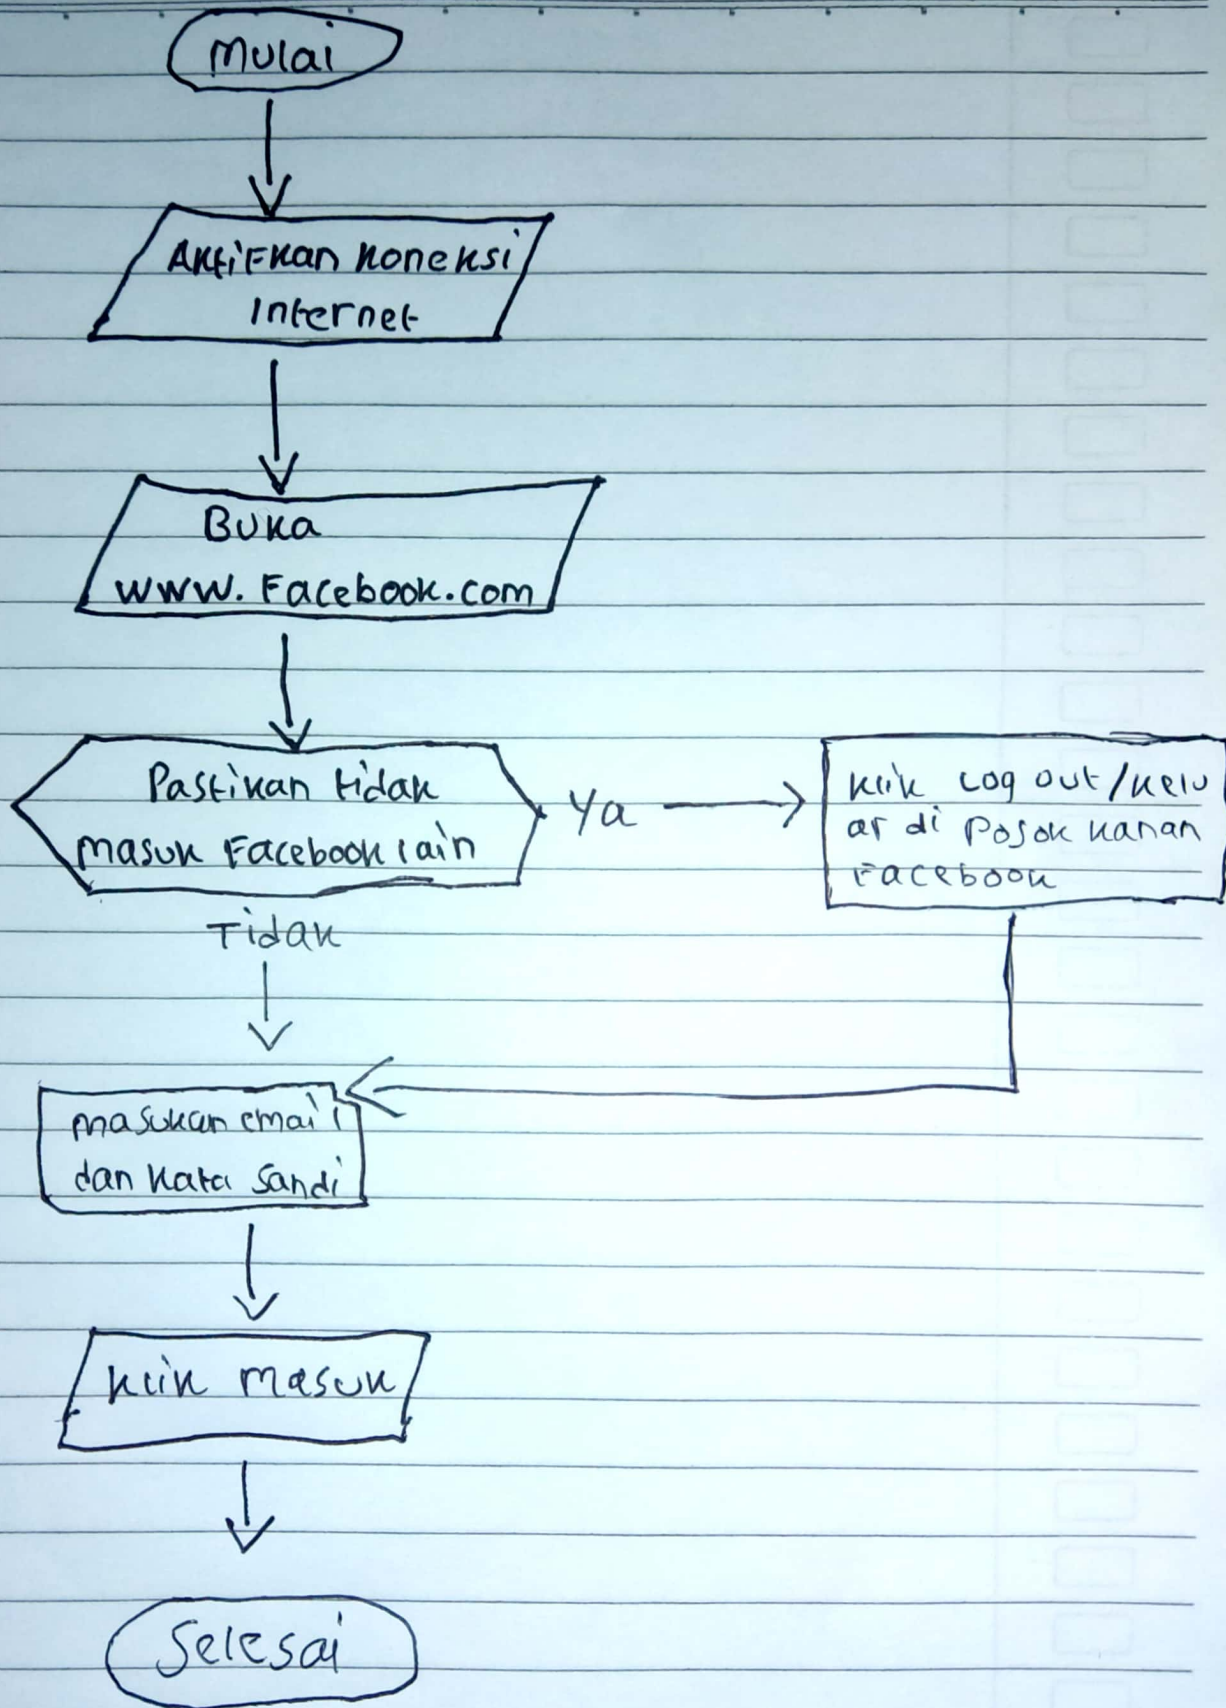 Mulai
Aktifkan koneksi
Internet
Buka
www.Facebook.com
Pastikan tidak
masuk Facebook lain
Ya
Klik Log out/kelu
ar di Pojok kanan
Facebook
Tidak
masukan email
dan kata sandi
Klik masuk
Selesai